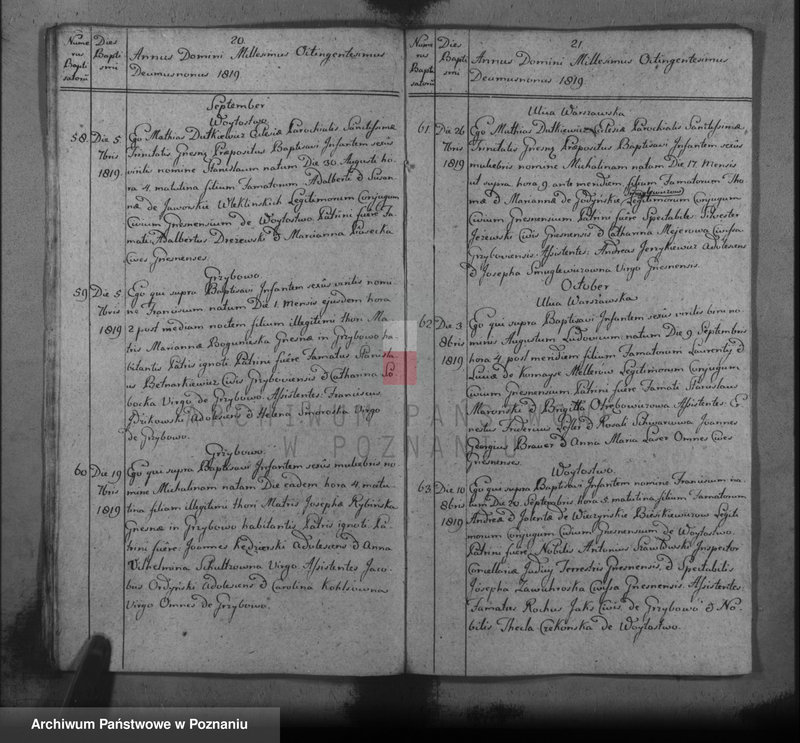 20.
Nume
rus
Bapti
satorũ
Dies
Bapti
smi
Annus Domini Millesimus Octingentesimus
Decimusnonus 1819
September
Woytostwo
58.
Die 5
7bris
1819
Ego Mathias Dutkiewicz Ecclesiæ Parochialis Sanctissimæ
Trinitatis Gnesnæ Præpositus Baptisavi Infantem sexûs
virilis nomine Stanislaum natum Die 30 Augusti ho
ra 4 matutina filium Famatorum Adalberti & Susan
næ de Jaworska Wleklinskich Legitimorum Conjugum
Civium Gnesnensium de Woytostwo. Patrini fuêre Fa
mati Adalbertus Drezewski & Marianna Piasecka
Cives Gnesnenses.
Grzybowo
59
Die 5
7bris
1819
Ego qui supra Baptisavi Infantem sexûs virilis nomi
ne Franciscum natum Die 1. mensis ejusdem hora
2 post mediam noctem filium illegitimi thori Ma
tris Mariannæ Bogunieska Gnesnæ in Grzybowo ha
bitantis Patris ignoti. Patrini fuêre Famatus Stanisla
us Betnarkiewicz Civis Grzyboviensis & Catharina So
bocka Virgo de Grzybowo. Assistentes Franciscus
Adolescens & Helena Sinoroska Virgo
de Grzybowo.
Grzybowo
60
Die 19
7bris
1819
Ego qui supra Baptisavi Infantem sexûs muliebris no
mine Michalinam natam Die eadem hora 4 matu
tina filiam illegitimi thori Matris Josephæ Rybinska
Gnesnæ in Grzybowo habitantis Patris ignoti Pa
trini fuêre: Joannes Kędzierski Adolescens & Anna
Wilhelmina Schultzowna Virgo. Assistentes Jaco
bus Ordynski Adolescens & Carolina Kohlsowna
Virgo Omnes de Grzybowo.
21.
Nume
rus
Bapti
satorũ
Dies
Bapti
smi
Annus Domini Millesimus Octingentesimus
Decimusnonus 1819.
Ulica Warszawska
61.
Die 26
7bris
1819
Ego Mathias Dutkiewicz Ecclesiæ Parochialis Sanctissimæ
Trinitatis Gnesnæ Præpositus Baptisavi Infantem sexûs
muliebris nomine Michalinam natam Die 17 Mensis
ut supra hora 9 ante meridiem filiam Famatorum Tho
mæ & Mariannæ de Godynskie Legitimorum Conjugum
Civium Gnesnensium Patrini fuêre Spectabiles: Silvester
Jezewski Civis Gnesnensis & Catharina Mejerowa Civissa
Grzyboviensis. Assistentes: Andreas Jerzykiewicz Adolescens
& Josepha Smuglewiczowna Virgo Gnesnensis.
October
Ulica Warszawska
62
Die 3
8bris
1819
Ego qui supra Baptisavi Infantem sexûs virilis bino no
minis Augustum Ludovicum natum Die 9 Septembris
hora 4 post meridiem filium Famatorum Laurenty &
de Mellerow Legitimorum Conjugum
Civium Gnesnensium. Patrini fuêre Famati Stanislaus
Maronski & Brigitta Otrębowiczowa. Assistentes: Er
nestus Fridericus & Rosali Schwarcowa Joannes
Georgius Brauer & Anna Maria Laser Omnes Cives
Gnesnenses.
Woytostwo
63
Die 10
8bris
1819
Ego qui supra Baptisavi Infantem nomine Franciscum na
tum Die 20 Septembris hora 5 matutina filium Famatorum
Andreæ & Jolentæ de Wieczynskie Bieskiewiczow Legiti
morum Conjugum Civium Gnesnensium de Woytostwo.
Patrini fuêre Nobilis Antonius Szawłowski Inspector
Cancellariæ Judicy Terrestris Gnesnensis, & Spectabilis
Josepha Zawichroska Civissa Gnesnensis. Assistentes
Famatus Rochus Jaks Civis de Grzybowo & No
bilis Thecla Czekonska de Woytostwo.
ARCHIWUM PAŃSTWOWE
W POZNANIU
Archiwum Państwowe w Poznaniu